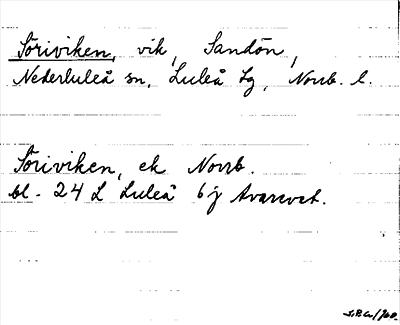 Söriviken, vik, Sandön,
Nederluleå sn, Luleå lg, Norrb. l.
Söriviken, ek Norrb.
bl. 24 L Luleå 6j Avarevat.